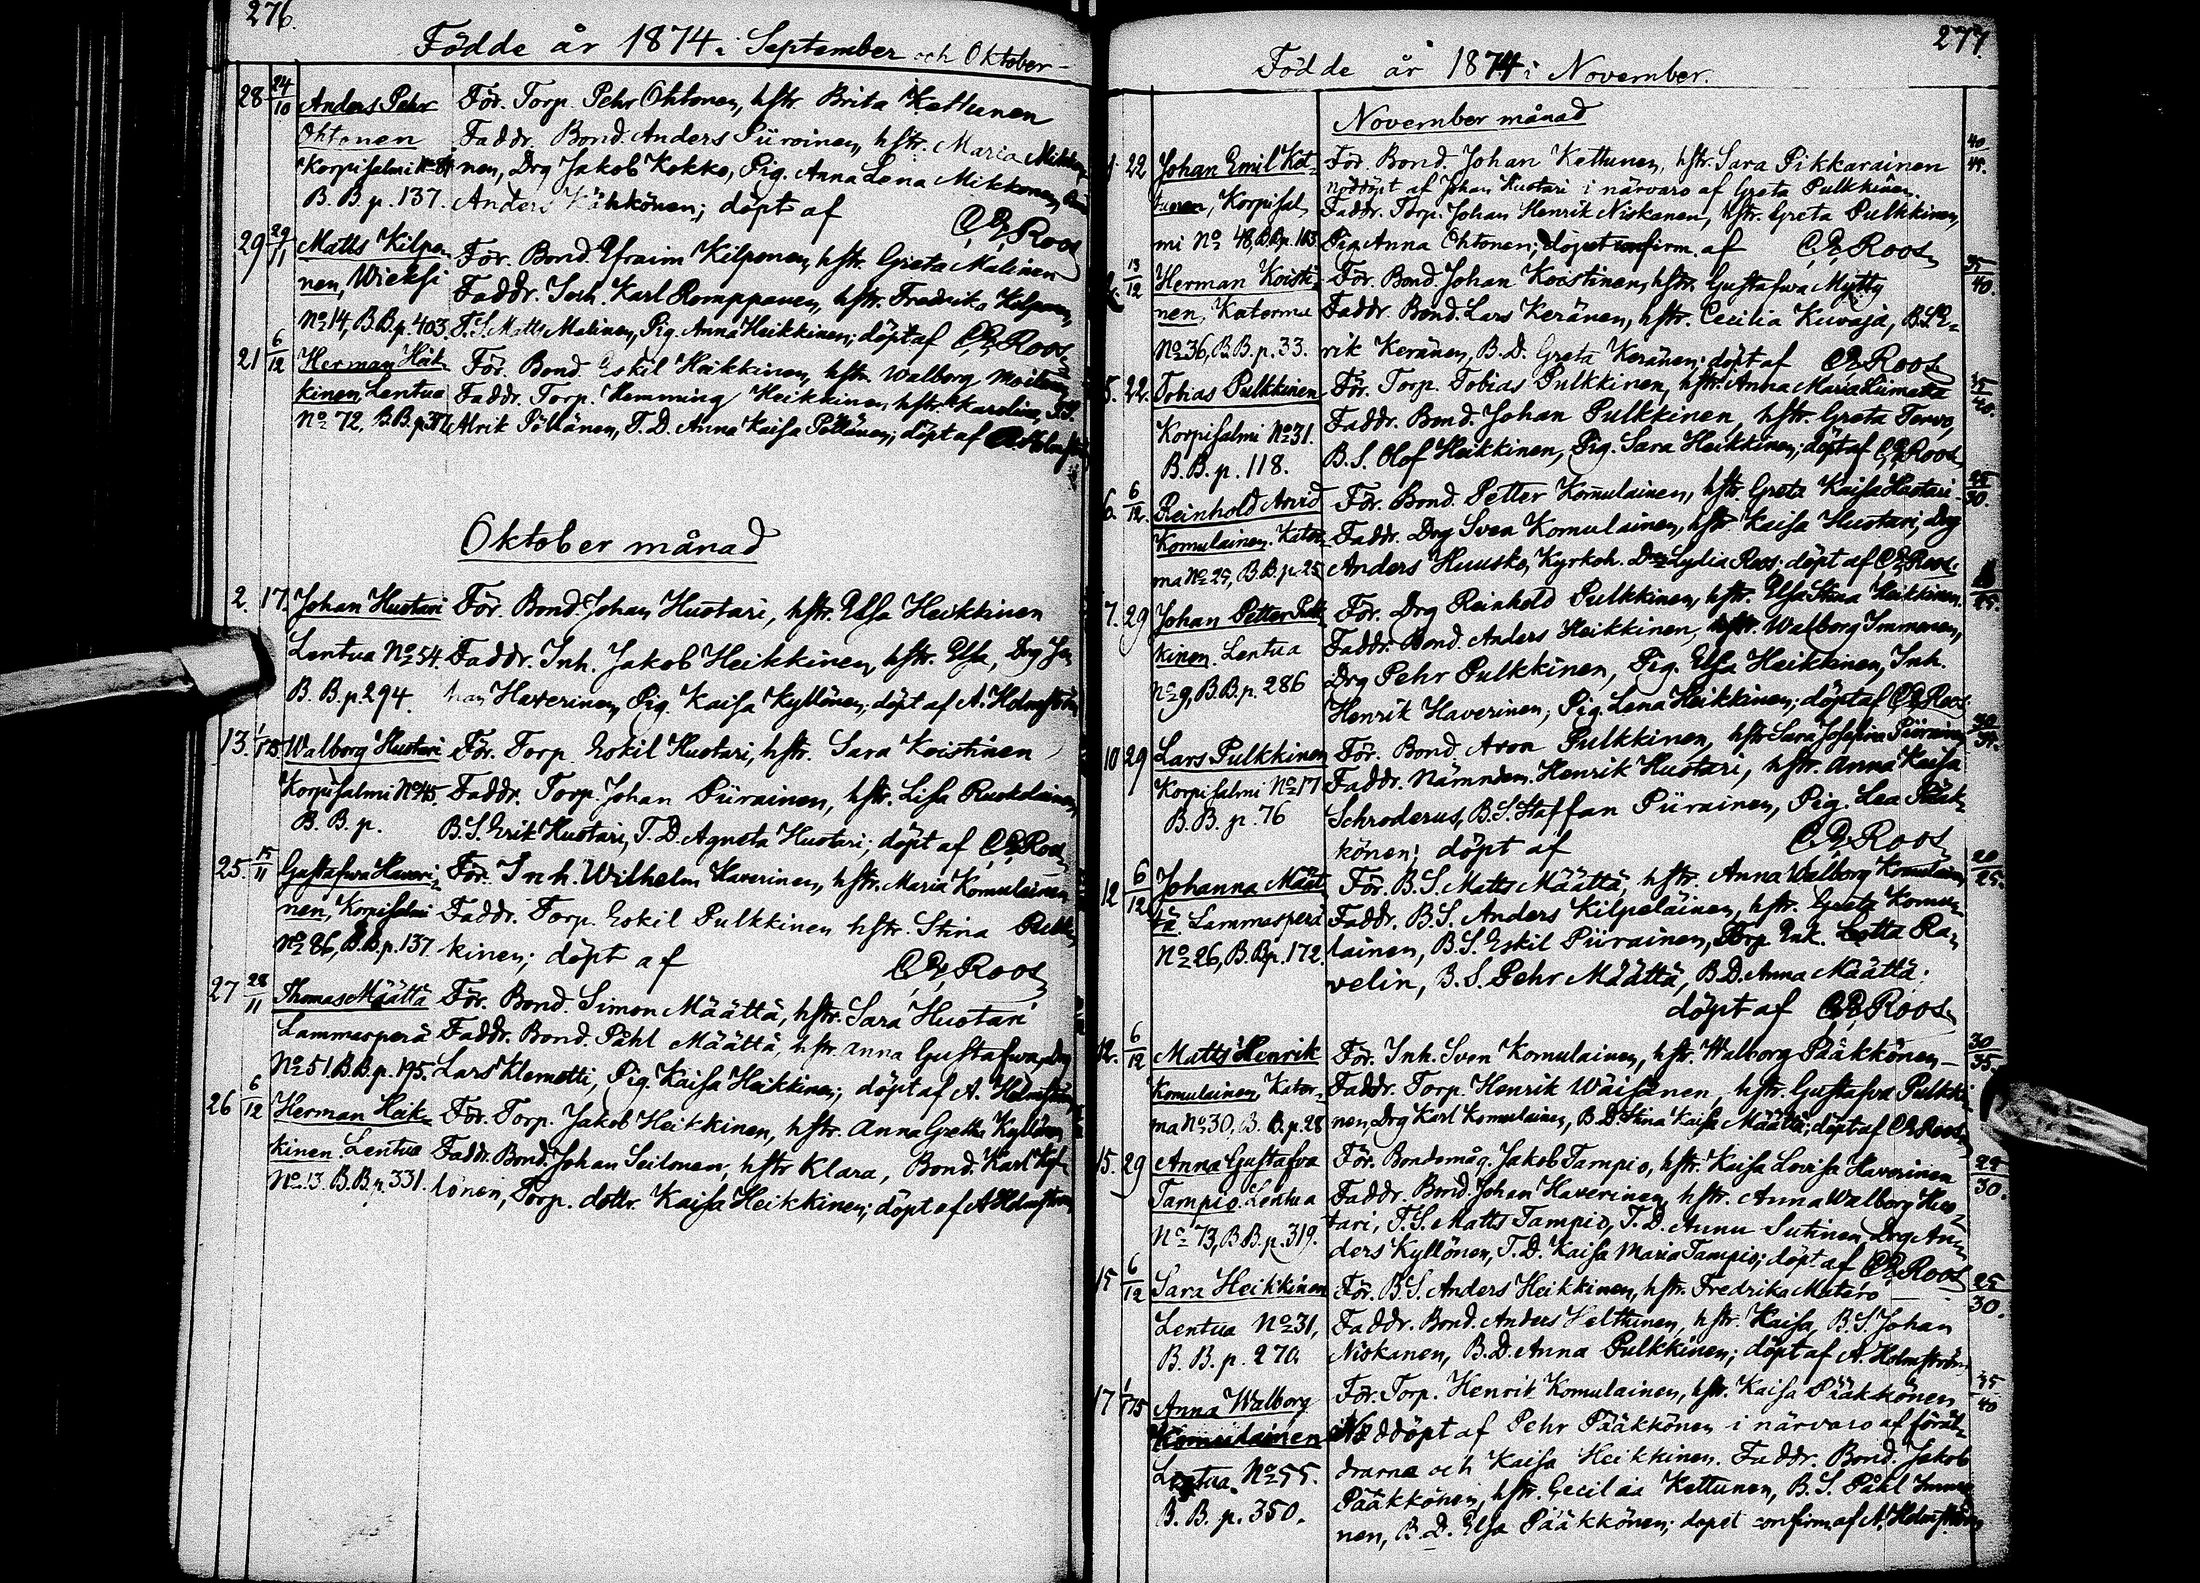 276.
Födde år 1874 i September och Oktober
28 24/10 Anders Pehr För. Torp. Pehr Ohtonen, hstr Brita Kettunen
Ohtonen Faddr. Bond. Anders Piirainen, hstr. Maria Mikko-
Korpisalmi nen, Drg Jakob Kokko, Pig. Anna Lena Mikkonen,
B. B. p. 137. Anders Kähkönen; döpt af C. E. Roos
29 29/11 Matts Kilpo- För. Bond. Efraim Kilponen, hstr. Greta Malinen
nen, Wieksi Faddr. Inh. Karl Romppanen, hstr. Fredrika Kilponen,
No 14, B.B.p. 403. T.S. Matts Malinen, Pig. Anna Heikkinen; döpt af C. E. Roos
21 6/12 Herman Heik- För. Bond. Eskil Heikkinen, hstr. Walborg Moilanen
kinen, Lentua Faddr. Torp. Hemming Heikkinen, hstr. Karolina, T.S.
No 72, B.B.p. Alrik Pöllänen, T.D. Anna Kaisa Pöllänen; döpt af A. Holmström
Oktober månad
2. 17. Johan Huotari För. Bond. Johan Huotari, hstr. Elsa Heikkinen
Lentua No 54. Faddr. Inh. Jakob Heikkinen, hstr. Elsa, Drg Jo-
B. B. p. 294. han Haverinen, Pig. Kaisa Kyllönen; döpt af A. Holmström
13. 1/1 75 Walborg Huotari För. Torp. Eskil Huotari, hstr. Sara Koistinen
Korpisalmi No 45. Faddr. Torp. Johan Piirainen, hstr. Lisa Ruokolainen,
B. B. p. B.S. Erik Huotari, T.D. Agneta Huotari; döpt af C. E. Roos
25. 15/11 Gustafva Haveri- För. Inh. Wilhelm Haverinen, hstr. Maria Komulainen
nen, Korpisalmi Faddr. Torp. Eskil Pulkkinen hstr. Stina Pulk-
No 86, B.B.p. 137 kinen; döpt af C. E. Roos
27 28/11 Thomas Määttä För. Bond. Simon Määttä, hstr. Sara Huotari
Lammasperä Faddr. Bond. Påhl Määttä, hstr. Anna Gustafva, Drg
No 51. B.B.p. 195. Lars Klemetti, Pig. Kaisa Heikkinen; döpt af A. Holmström
26 6/12 Herman Heik- För. Torp. Jakob Heikkinen, hstr. Anna Greta Kyllönen
kinen. Lentua Faddr. Bond. Johan Seilonen, hstr Klara, Bond. Karl Kyl-
No 13. B.B.p. 331. lönen, Torp. dottr. Kaisa Heikkinen; döpt af A Holmström
277.
Födde år 1874 i November.
November månad
1 22 Johan Emil Ket- För. Bond. Johan Kettunen, hstr. Sara Pikkarainen 40/45.
tunen, Korpisal- nöddöpt af Johan Huotari i närvaro af Greta Pulkkinen.
Faddr. Torp. Johan Henrik Niskanen, hstr. Greta Pulkkinen,
mi No 48, B.B.p. 103 Pig. Anna Ohtonen; dopet confirm. af C. E. Roos
13/12 Herman Koisti- För. Bond. Johan Koistinen, hstr. Gustafva Mytty 35/40.
nen, Katerma Faddr. Bond. Lars Keränen, hstr. Cecilia Kuvaja, B.S. E-
No 36, B.B.p. 33. rik Keränen, B.D. Greta Keränen; döpt af C. E. Roos
5. 22. Tobias Pulkkinen För. Torp. Tobias Pulkkinen, hstr. Anna Maria Liimatta 35/40.
Korpisalmi No 31. Faddr. Bond. Johan Pulkkinen, hstr. Greta Tervo,
B. B. p. 118. B.S. Olof Heikkinen, Pig. Sara Heikkinen; döpt af C. E. Roos
6. 6/12. Reinhold Arvid För. Bond. Petter Komulainen, hstr. Greta Kaisa Huotari 25/30.
Komulainen. Kater- Faddr. Drg Sven Komulainen, hstr Kaisa Huotari, Drg
ma No 29, B.B.p. 25 Anders Huusko, Kyrkoh. Dr Lydia Roos; döpt af C. E. Roos.
7. 29 Johan Petter Pulk- För. Drg Reinhold Pulkkinen, hstr. Elsa Stina Heikkinen
kinen. Lentua Faddr. Bond. Anders Heikkinen, hstr. Walborg Immonen,
No 9, B.B.p. 286 Drg Pehr Pulkkinen, Pig. Elsa Heikkinen, Inh.
Henrik Haverinen, Pig. Lena Heikkinen; döpt af C. E. Roos
10 29 Lars Pulkkinen För. Bond. Aron Pulkkinen, hstr. Sara Josefina Piirainen
Korpisalmi No 17 Faddr. Nämndem. Henrik Huotari, hstr. Anna Kaisa
B. B. p. 76 Schroderus, B.S. Staffan Piirainen, Pig. Lea Pääk-
könen; döpt af C. E. Roos
12 6/12 Johanna Määt- För. B.S. Matts Määttä, hstr. Anna Walborg Komulainen 20/25.
tä. Lammasperä Faddr. B.S. Anders Kilpeläinen, hstr. Greta Komu-
No 26, B.B.p. 172. lainen, B.S. Eskil Piirainen, Torp. Enk. Lotta Ra-
velin, B.S. Pehr Määttä, B.D. Anna Määttä;
döpt af C. E. Roos
12. 6/12 Matts Henrik För. Inh. Sven Komulainen, hstr. Walborg Pääkkönen 30/35.
Komulainen, Kater- Faddr. Torp. Henrik Wäisänen, hstr. Gustafva Pulkki-
ma No 30, B. B.p. 28 nen, Drg Karl Komulainen, B.D. Stina Kaisa Määttä; döpt af C. E. Roos
15. 29 Anna Gustafva För. Bondemåg. Jakob Tampio, hstr. Kaisa Lovisa Haverinen 29/30.
Tampio. Lentua Faddr. Bond. Johan Haverinen, hstr. Anna Walborg Huo-
No 73, B.B.p. 319. tari, T.S. Matts Tampio, T.D. Anna Sutinen, Drg An-
ders Kyllönen, T.D. Kaisa Maria Tampio; döpt af C. E. Roos
15 6/12 Sara Heikkinen För. B.S. Anders Heikkinen, hstr. Fredrika Matero 25/30.
Lentua No 31, Faddr. Bond. Anders Helttunen, hstr. Kaisa, B.S. Johan
B. B. p. 270. Niskanen, B.D. Anna Pulkkinen; döpt af A. Holmström
17 1/1 75 Anna Walborg För. Torp. Henrik Komulainen, hstr. Kaisa Pääkkönen 35/40
Komulainen Nöddöpt af Pehr Pääkkönen i närvaro af föräl-
Lentua. No 55. drarne och Kaisa Heikkinen. Faddr. Bond. Jakob
B. B. p. 350. Pääkkönen, hstr. Cecilia Kettunen, B.S. Påhl Immo-
nen, B.D. Elsa Pääkkönen; dopet confirm. af A. Holmström